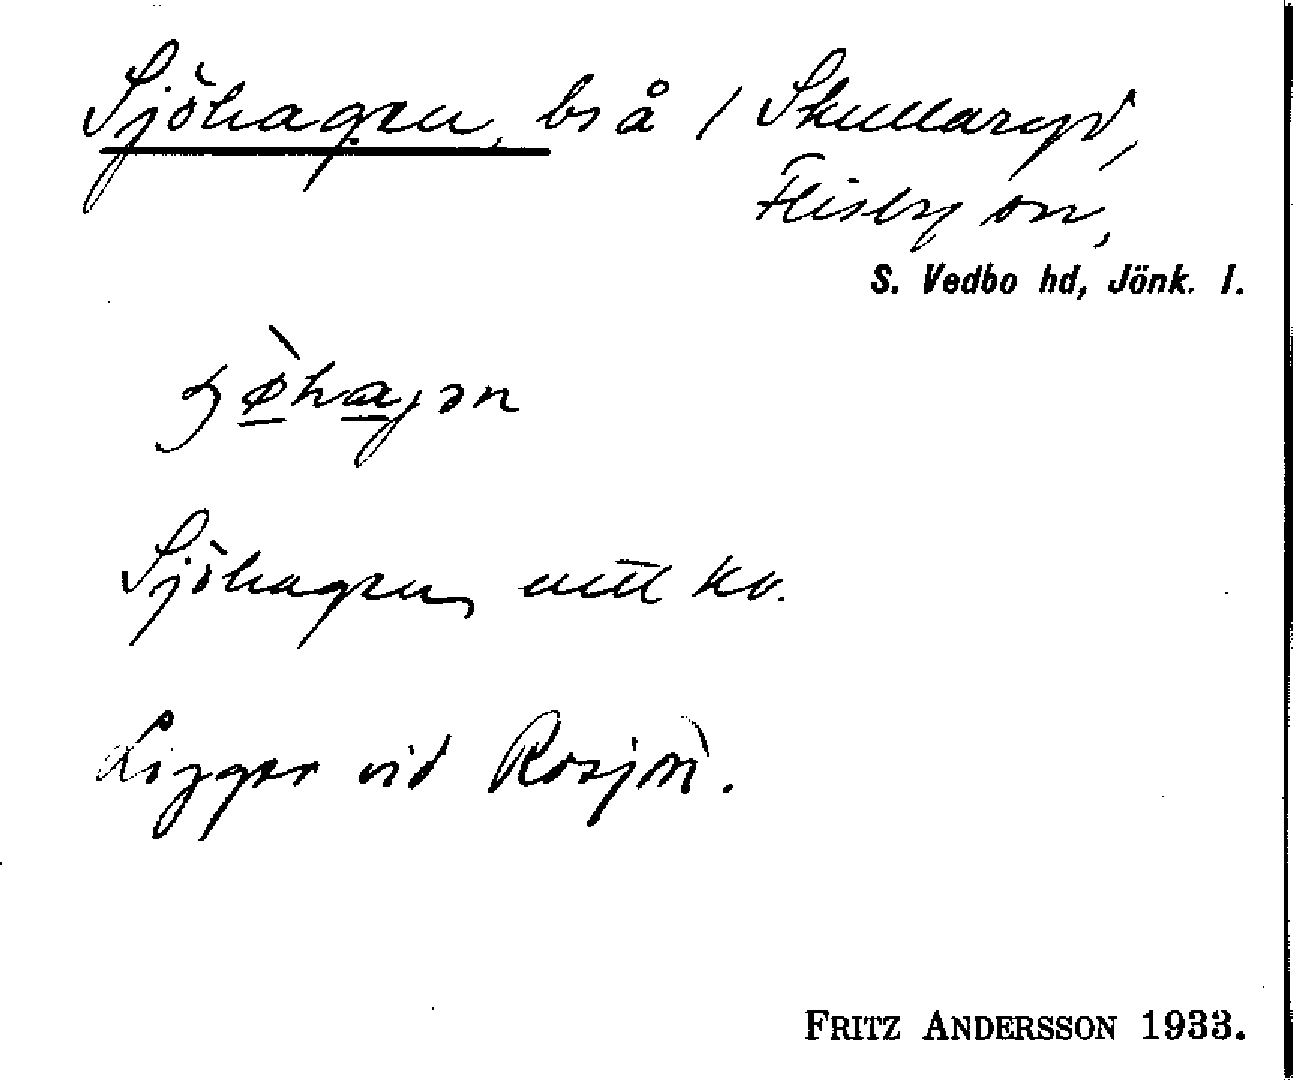 Sjöhagen, bs å 1 Skullaryd,
Flisby sn,
S. Vedbo hd, Jönk. l.
Sjöhagen, utt kv.
Ligger vid Rosjön.
FRITZ ANDERSSON 1933.